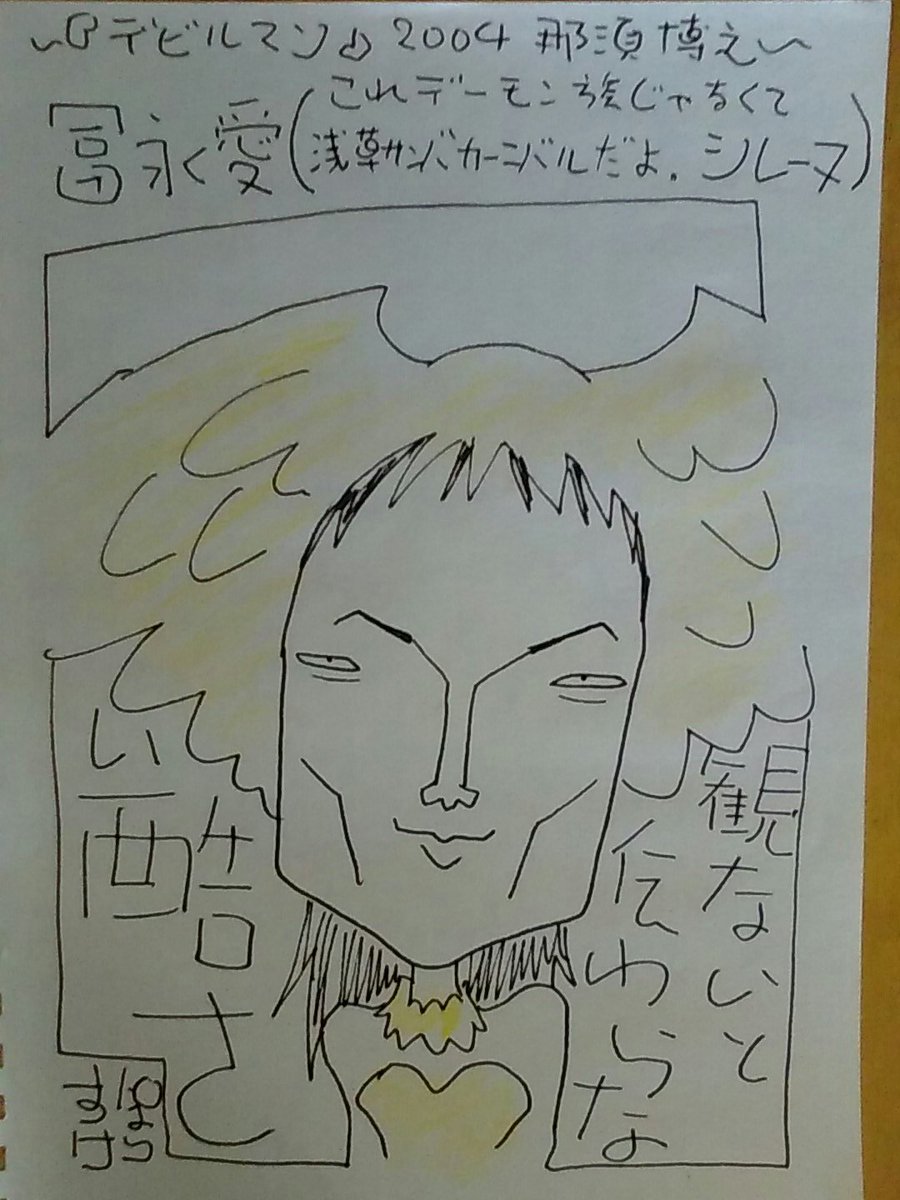 ～『デビルマン』2004 那須博之～
冨永愛(これデーモン族じゃなくて
浅草サンバカーニバルだよ。シレーヌ)
観ないと
伝わらな
い酷さ